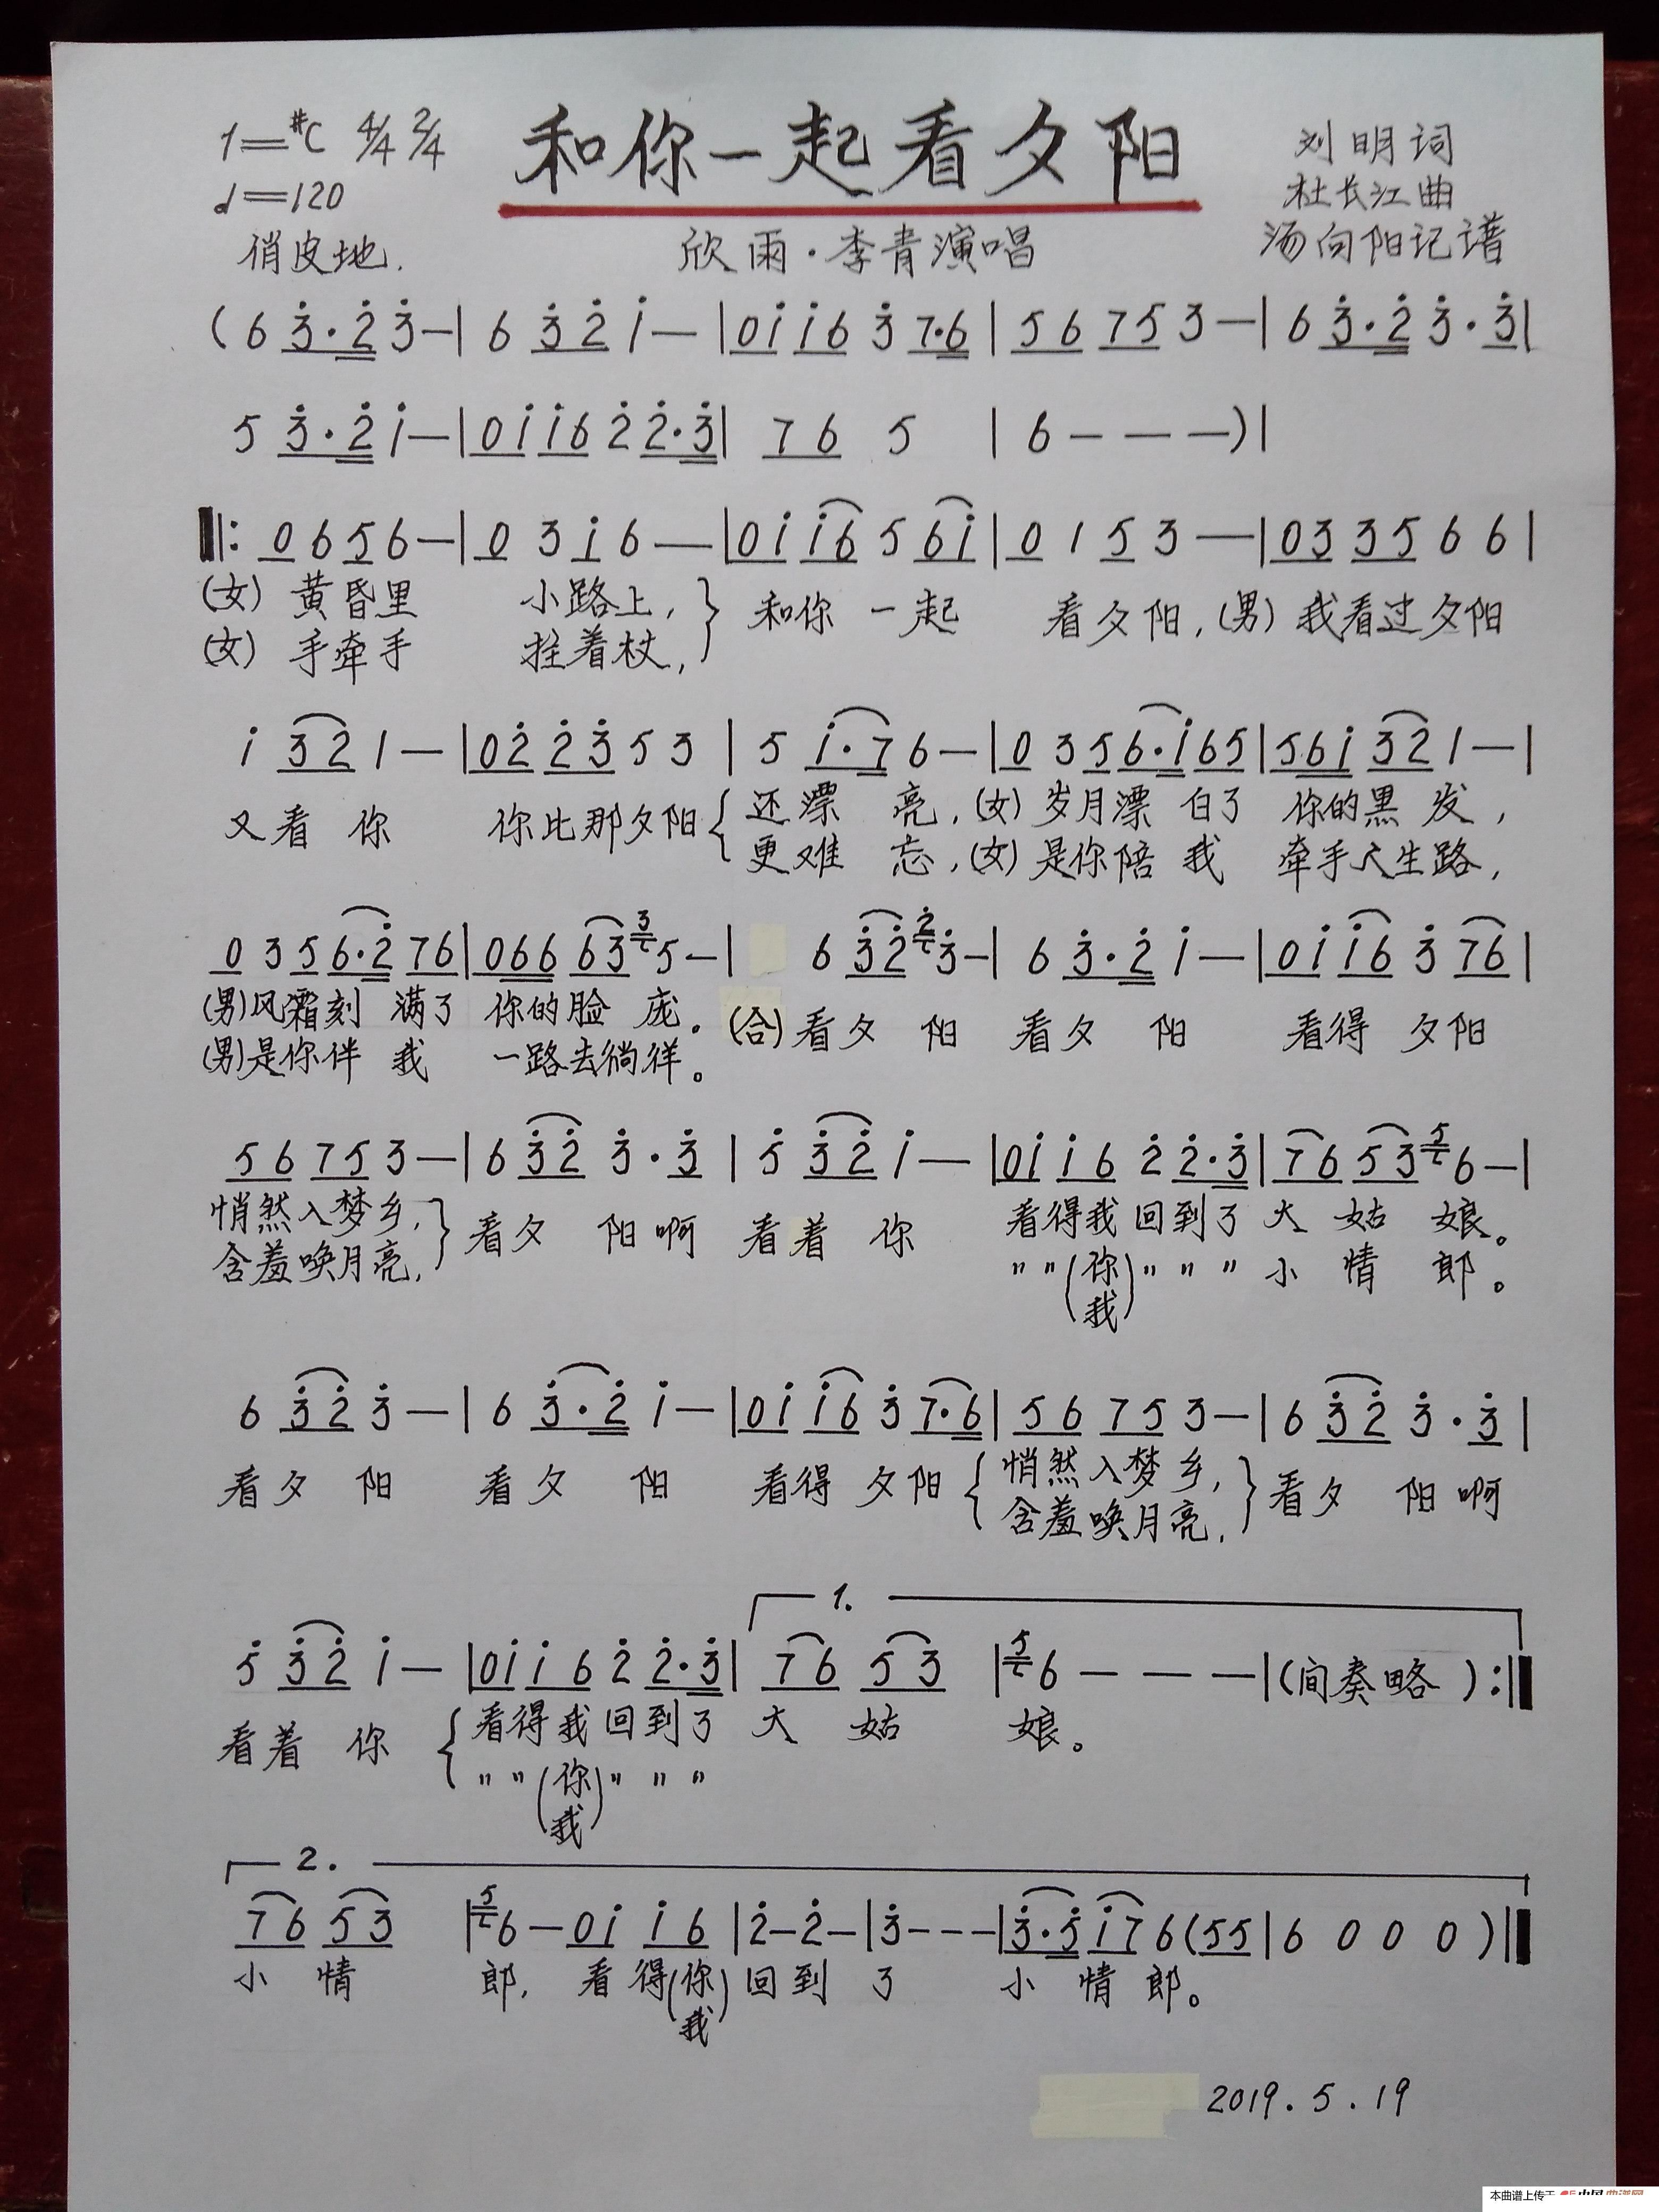 1=#C 4/4 2/4
和你一起看夕阳
刘明词
♩=120
杜长江曲
俏皮地.
欣雨·李青演唱
汤向阳记谱
(6 3̇·2̇ 3̇—|6 3̇2̇ 1̇—|01̇ 1̇6 3̇ 7·6|56 75 3—|6 3̇·2̇ 3̇·3̇|
5 3̇·2̇ 1̇—|01̇ 1̇6 2̇ 2̇·3̇|76 5|6———)|
‖: 0 6 5 6—|0 3 1̇ 6—|01̇ 1̇6 5 61̇|0 1 5 3—|03 35 6 6|
(女) 黄昏里 小路上,} 和你 一起 看夕阳,(男) 我看过夕阳
(女) 手牵手 拄着杖,
1̇ 32 1—|02̇ 2̇3̇ 5 3|5 1̇·7 6—|0 3 5 6·1̇ 65|561̇ 32 1—|
又看 你 你比那夕阳{还漂 亮,(女) 岁月漂 白了 你的黑 发,
更难 忘,(女) 是你陪 我 牵手人生路,
0 3 5 6·2̇ 76|066 63 3 5—|6 3̇2̇ 2̇ 3̇—|6 3̇·2̇ 1̇—|01̇ 1̇6 3̇ 76|
(男)风霜刻 满了 你的脸 庞。(合)看夕 阳 看夕 阳 看得 夕阳
(男)是你伴 我 一路去徜徉。
56 75 3—|6 3̇2̇ 3̇·3̇|5̇ 3̇2̇ 1̇—|01̇ 1̇6 2̇ 2̇·3̇|76 53 5 6—|
悄然入梦乡,} 看夕 阳啊 看着 你 看得我回到了 大 姑 娘。
含羞唤月亮, 〃〃(你我)〃〃〃 小 情 郎。
6 3̇2̇ 3̇—|6 3̇·2̇ 1̇—|01̇ 1̇6 3̇ 7·6|56 75 3—|6 3̇2̇ 3̇·3̇|
看夕 阳 看夕 阳 看得 夕阳{悄然入梦乡,} 看夕 阳啊
含羞唤月亮,
1.
5̇ 3̇2̇ 1̇—|01̇ 1̇6 2̇ 2̇·3̇|76 53|5 6———|(间奏略):‖
看着 你 {看得我回到了 大 姑 娘。
〃〃(你我)〃〃〃
2.
76 53|5 6—01̇ 1̇6|2̇—2̇—|3̇———|3̇·5̇ 1̇7 6(55|6 0 0 0)‖
小 情 郎, 看得(你我)回到 了 小 情 郎。
2019.5.19
本曲谱上传于